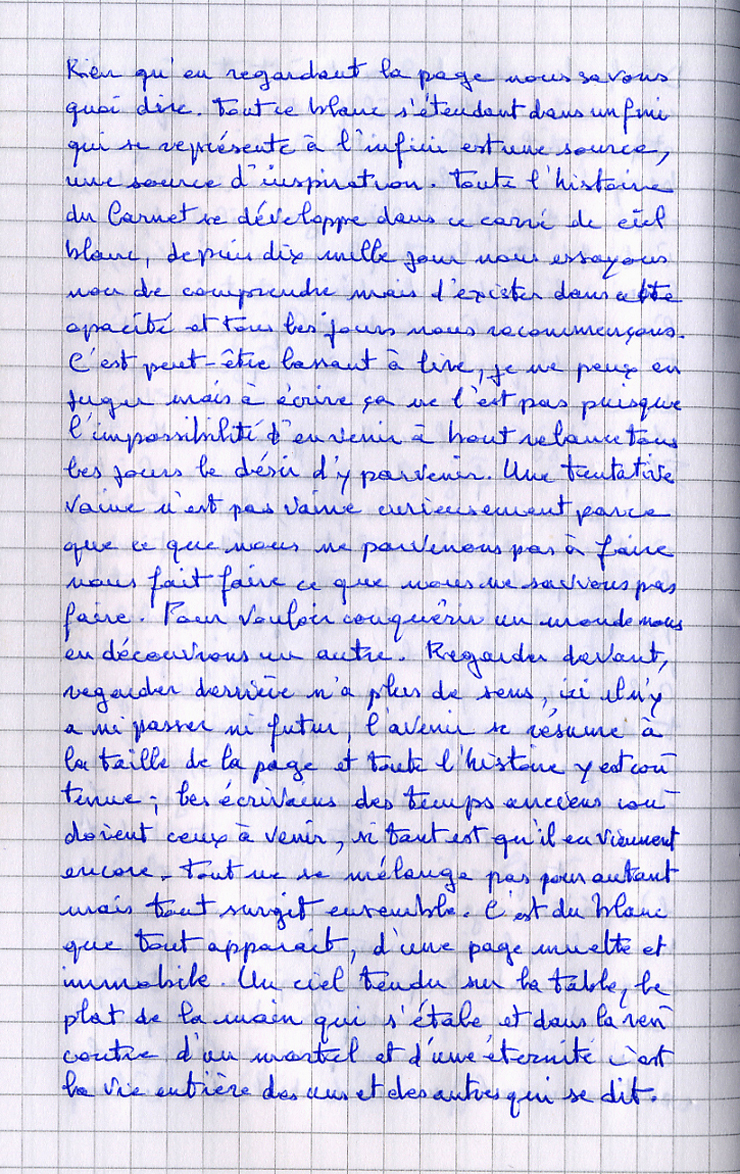 Rien qu'en regardant la page nous savons
quoi dire. Tout ce blanc s'étendant dans un fini
qui se représente à l'infini est une source,
une source d'inspiration. Toute l'histoire
du Carnet se développe dans ce carré de ciel
blanc, depuis dix mille jour nous essayons
non de comprendre mais d'exister dans cette
opacité et tous les jours nous recommençons.
C'est peut-être lassant à lire, je ne peux en
juger mais à écrire ça ne l'est pas puisque
l'impossibilité d'en venir à bout relance tous
les jours le désir d'y parvenir. Une tentative
vaine n'est pas vaine curieusement parce
que ce que nous ne parvenons pas à faire
nous fait faire ce que nous ne savons pas
faire. Pour vouloir conquérir un monde nous
en découvrons un autre. Regarder devant,
regarder derrière n'a plus de sens, ici il n'y
a ni passer ni futur, l'avenir se résume à
la taille de la page et toute l'histoire y est con
tenue ; les écrivains des temps anciens cou
doient ceux à venir, si tant est qu'il en viennent
encore. Tout ne se mélange pas pour autant
mais tout surgit ensemble. C'est du blanc
que tout apparait, d'une page muette et
immobile. Un ciel tendu sur la table, le
plat de la main qui s'étale et dans la ren
contre d'un mortel et d'une éternité c'est
la vie entière des uns et des autres qui se dit.